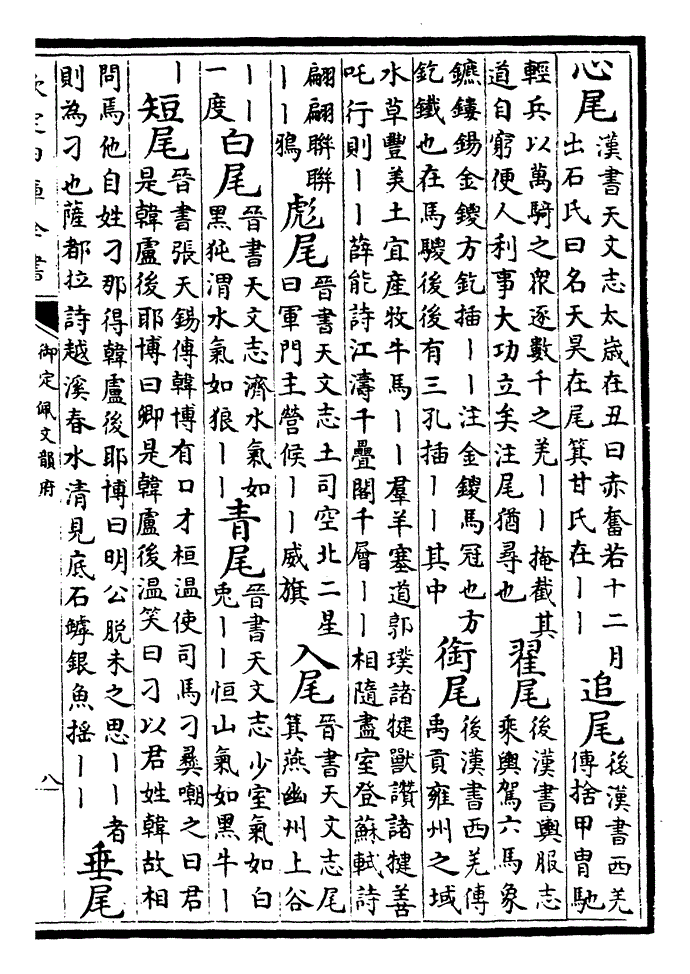 心尾
漢書天文志太歲在丑曰赤奮若十二月
出石氏曰名天昊在尾箕甘氏在丨丨
追尾
後漢書西羌
傳捨甲冑馳
輕兵以萬騎之衆逐數千之羌丨丨掩截其
道自窮便人利事大功立矣注尾猶尋也
翟尾
後漢書輿服志
乘輿駕六馬象
鑣鏤鍚金鍐方釳插丨丨注金鍐馬冠也方
釳鐵也在馬騣後後有三孔插丨丨其中
銜尾
後漢書西羌傳
禹貢雍州之域
水草豐美土宜産牧牛馬丨丨羣羊塞道郭璞諸犍獸讚諸犍善
吒行則丨丨薛能詩江濤千疊閣千層丨丨相隨盡室登蘇軾詩
翩翩聯聯
丨丨鴉
彪尾
晉書天文志土司空北二星
曰軍門主營候丨丨威旗
入尾
晉書天文志尾
箕燕幽州上谷
丨丨
一度
白尾
晉書天文志濟水氣如
黑㹠渭水氣如狼丨丨
青尾
晉書天文志少室氣如白
兎丨丨恒山氣如黑牛丨
丨
短尾
晉書張天錫傳韓博有口才桓温使司馬刁彛嘲之曰君
是韓盧後耶博曰卿是韓盧後温笑曰刁以君姓韓故相
問焉他自姓刁那得韓盧後耶博曰明公脱未之思丨丨者
則為刁也薩都拉詩越溪春水清見底石罅銀魚摇丨丨
垂尾
欽定四庫全書
御定佩文韻府
八